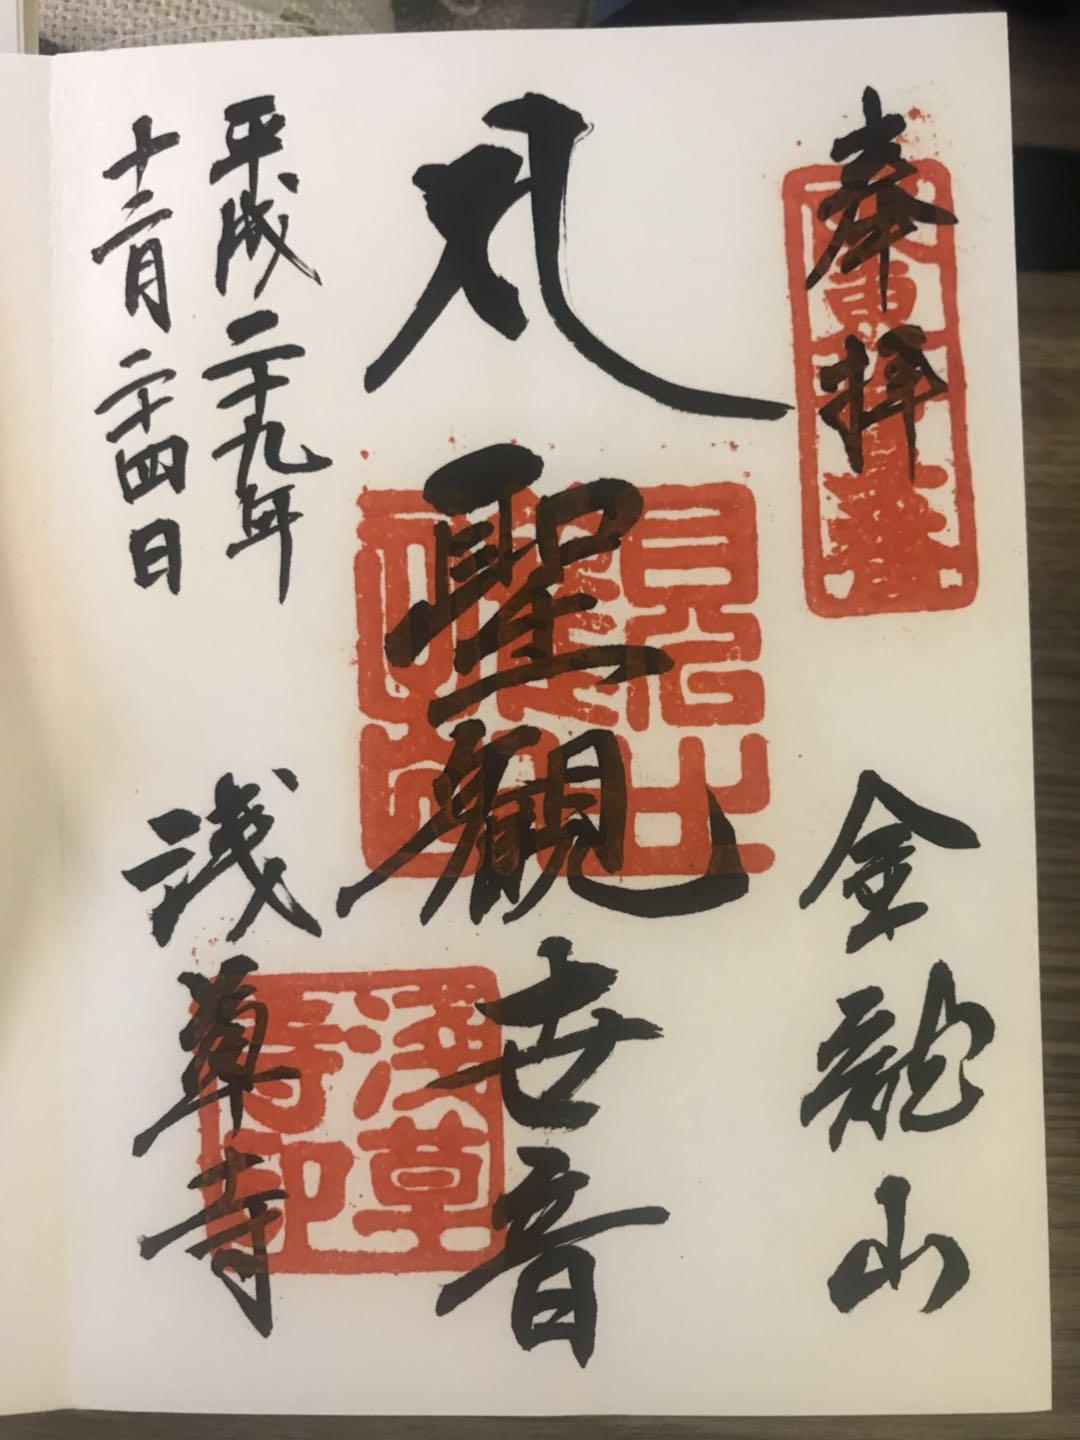 奉拝
金龍山
聖観世音
平成二十九年
十二月二十四日
浅草寺
浅草
寺印